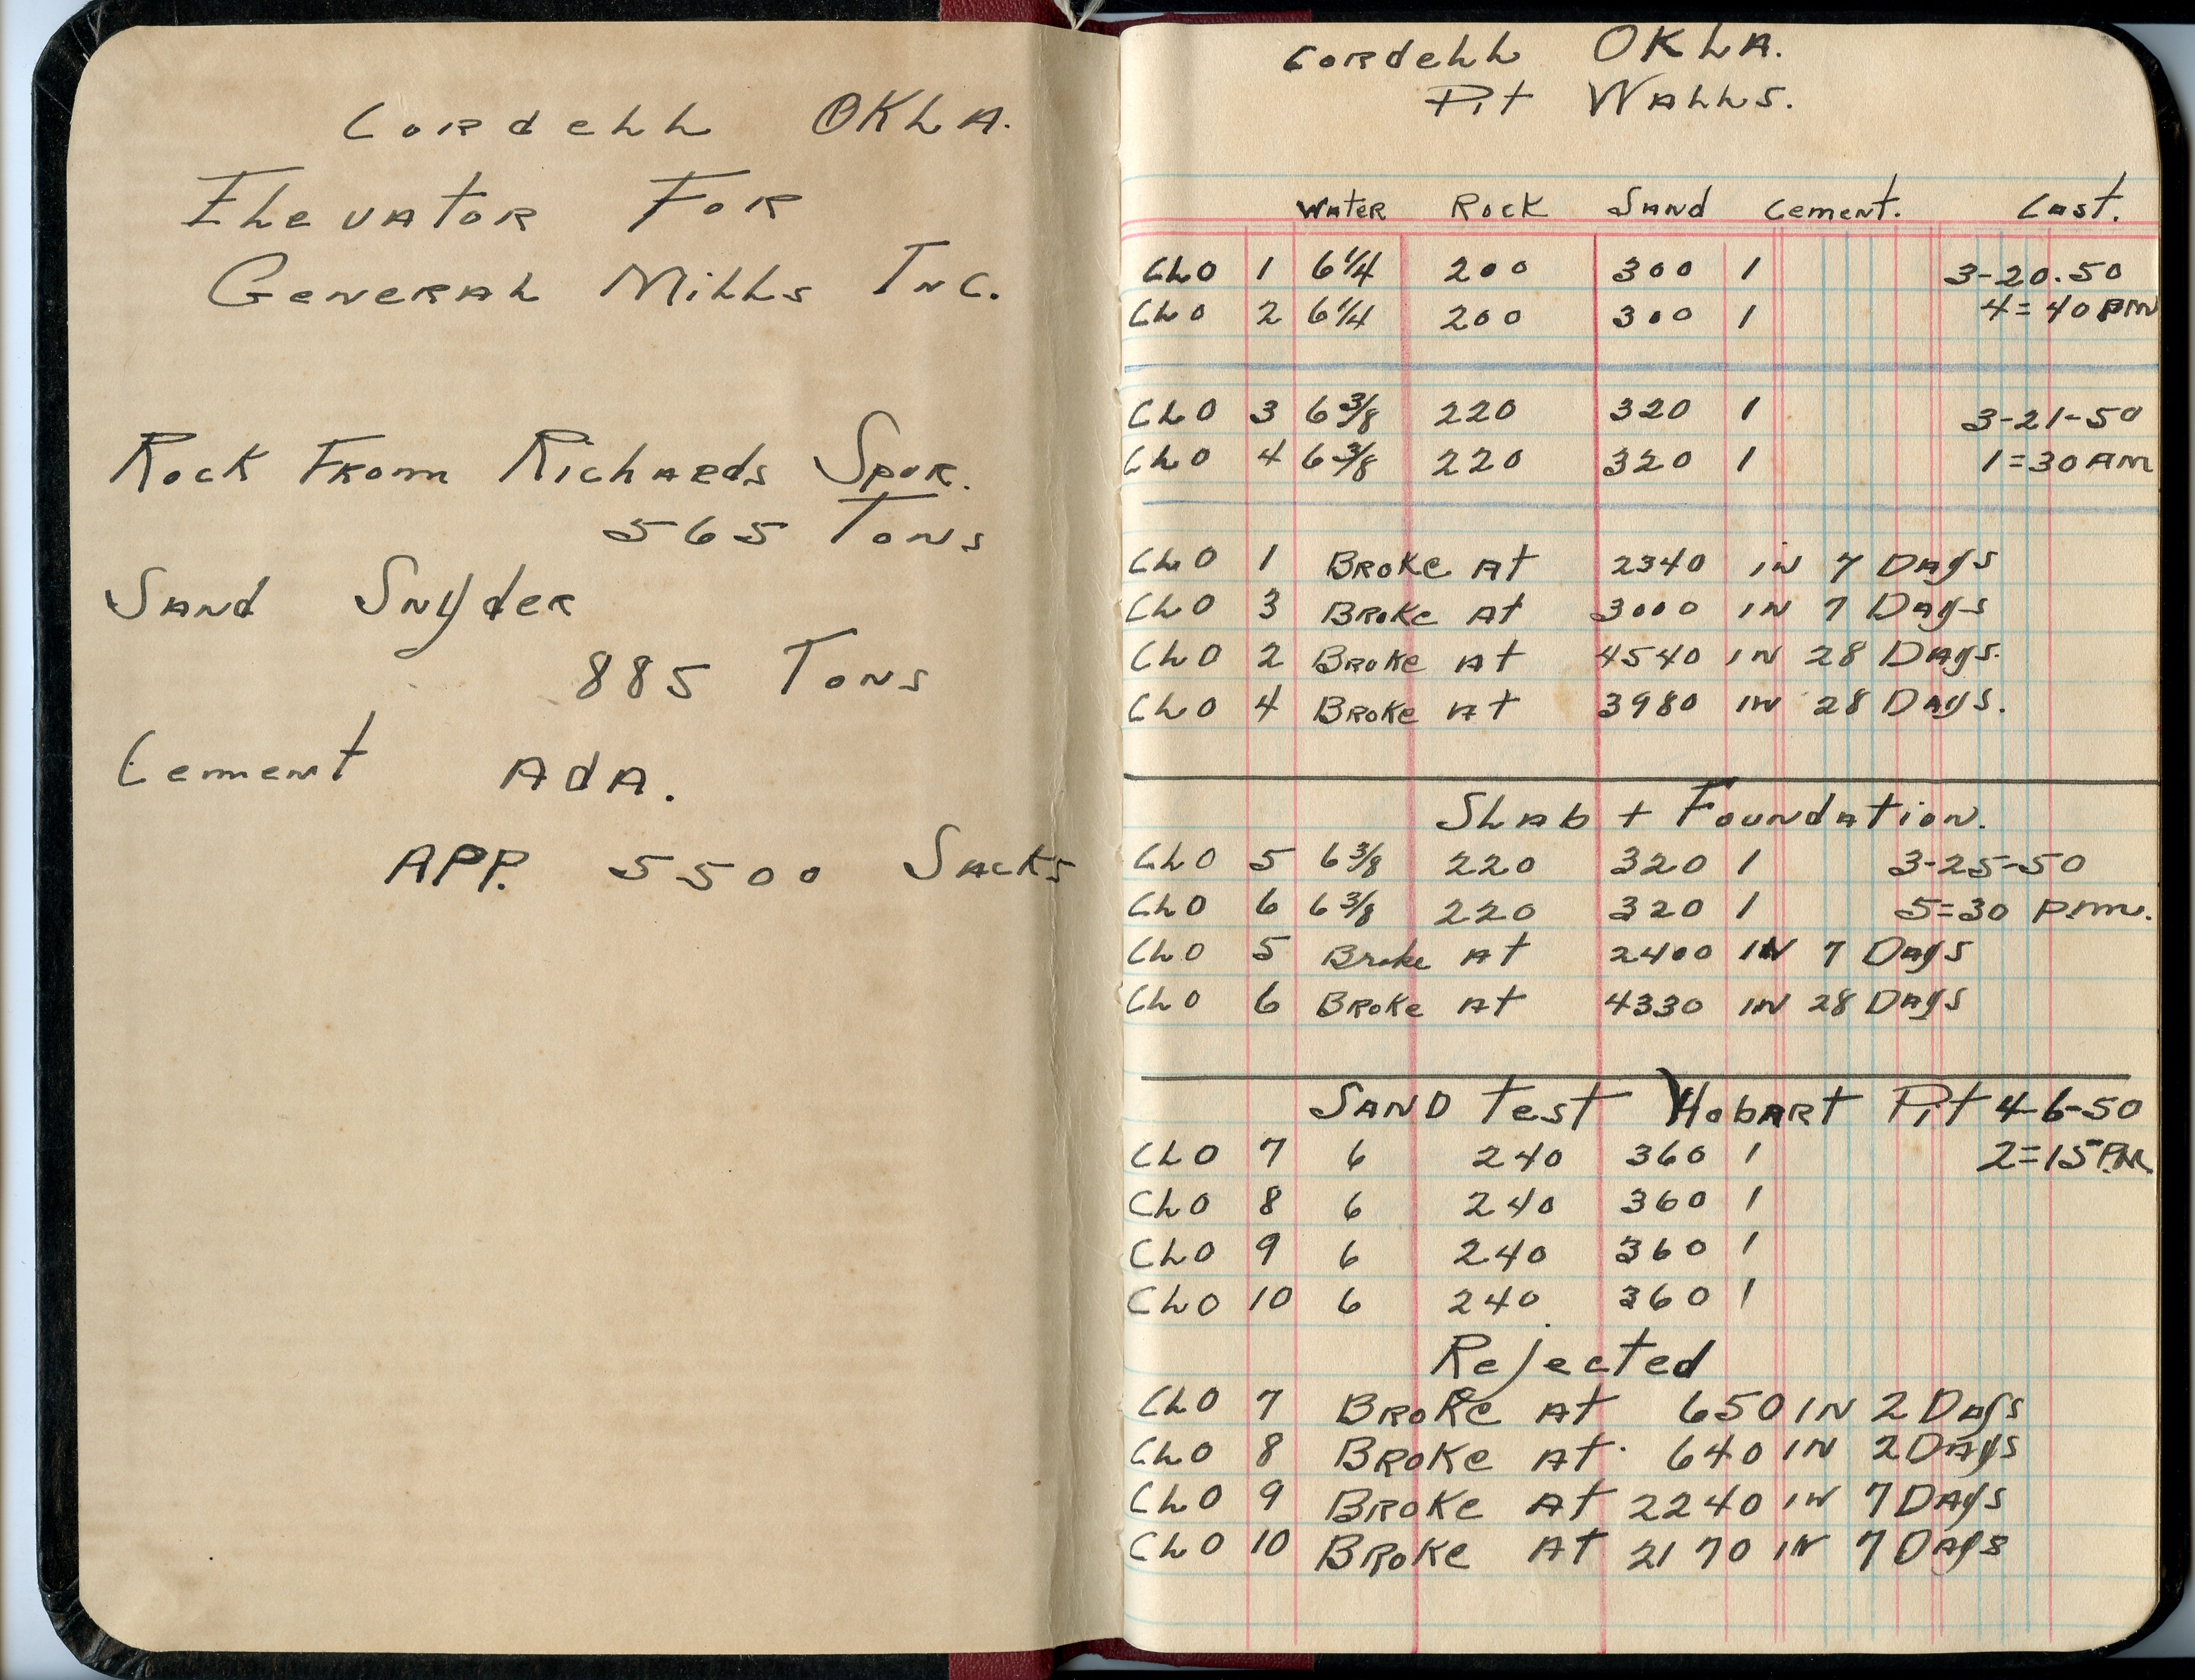 Cordell OKLA.
Elevator For
General Mills Inc.
Rock From Richards Spur.
565 Tons
Sand Snyder
885 Tons
Cement AdA.
APP. 5500 Sacks
Cordell OKLA.
Pit Walls.
Water Rock Sand Cement. Cast.
CLO 1 6 1/4 200 300 1 3-20.50
CLO 2 6 1/4 200 300 1 4=40 PM
CLO 3 6 3/8 220 320 1 3-21-50
CLO 4 6 3/8 220 320 1 1=30 AM
CLO 1 Broke At 2340 in 7 Days
CLO 3 Broke At 3000 in 7 Days
CLO 2 Broke At 4540 in 28 Days.
CLO 4 Broke At 3980 in 28 Days.
Slab + Foundation.
CLO 5 6 3/8 220 320 1 3-25-50
CLO 6 6 3/8 220 320 1 5=30 P.m.
CLO 5 Broke At 2400 IN 7 Days
CLO 6 Broke At 4330 IN 28 Days
SAND Test Hobart Pit 4-6-50
CLO 7 6 240 360 1 2=15 P.M.
CLO 8 6 240 360 1
CLO 9 6 240 360 1
CLO 10 6 240 360 1
Rejected
CLO 7 Broke At 650 IN 2 Days
CLO 8 Broke At 640 IN 2 Days
CLO 9 Broke At 2240 IN 7 Days
CLO 10 Broke At 2170 IN 7 Days